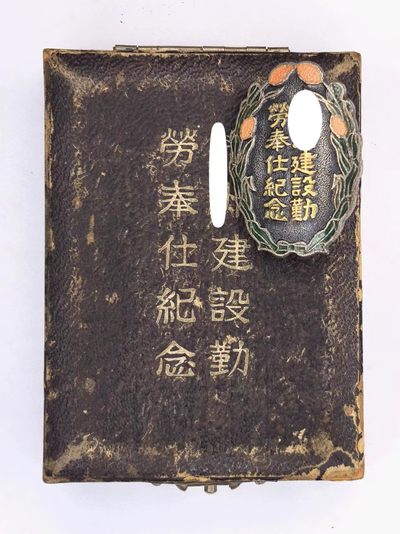 建設勤
勞奉仕紀念
建設勤
勞奉仕紀念